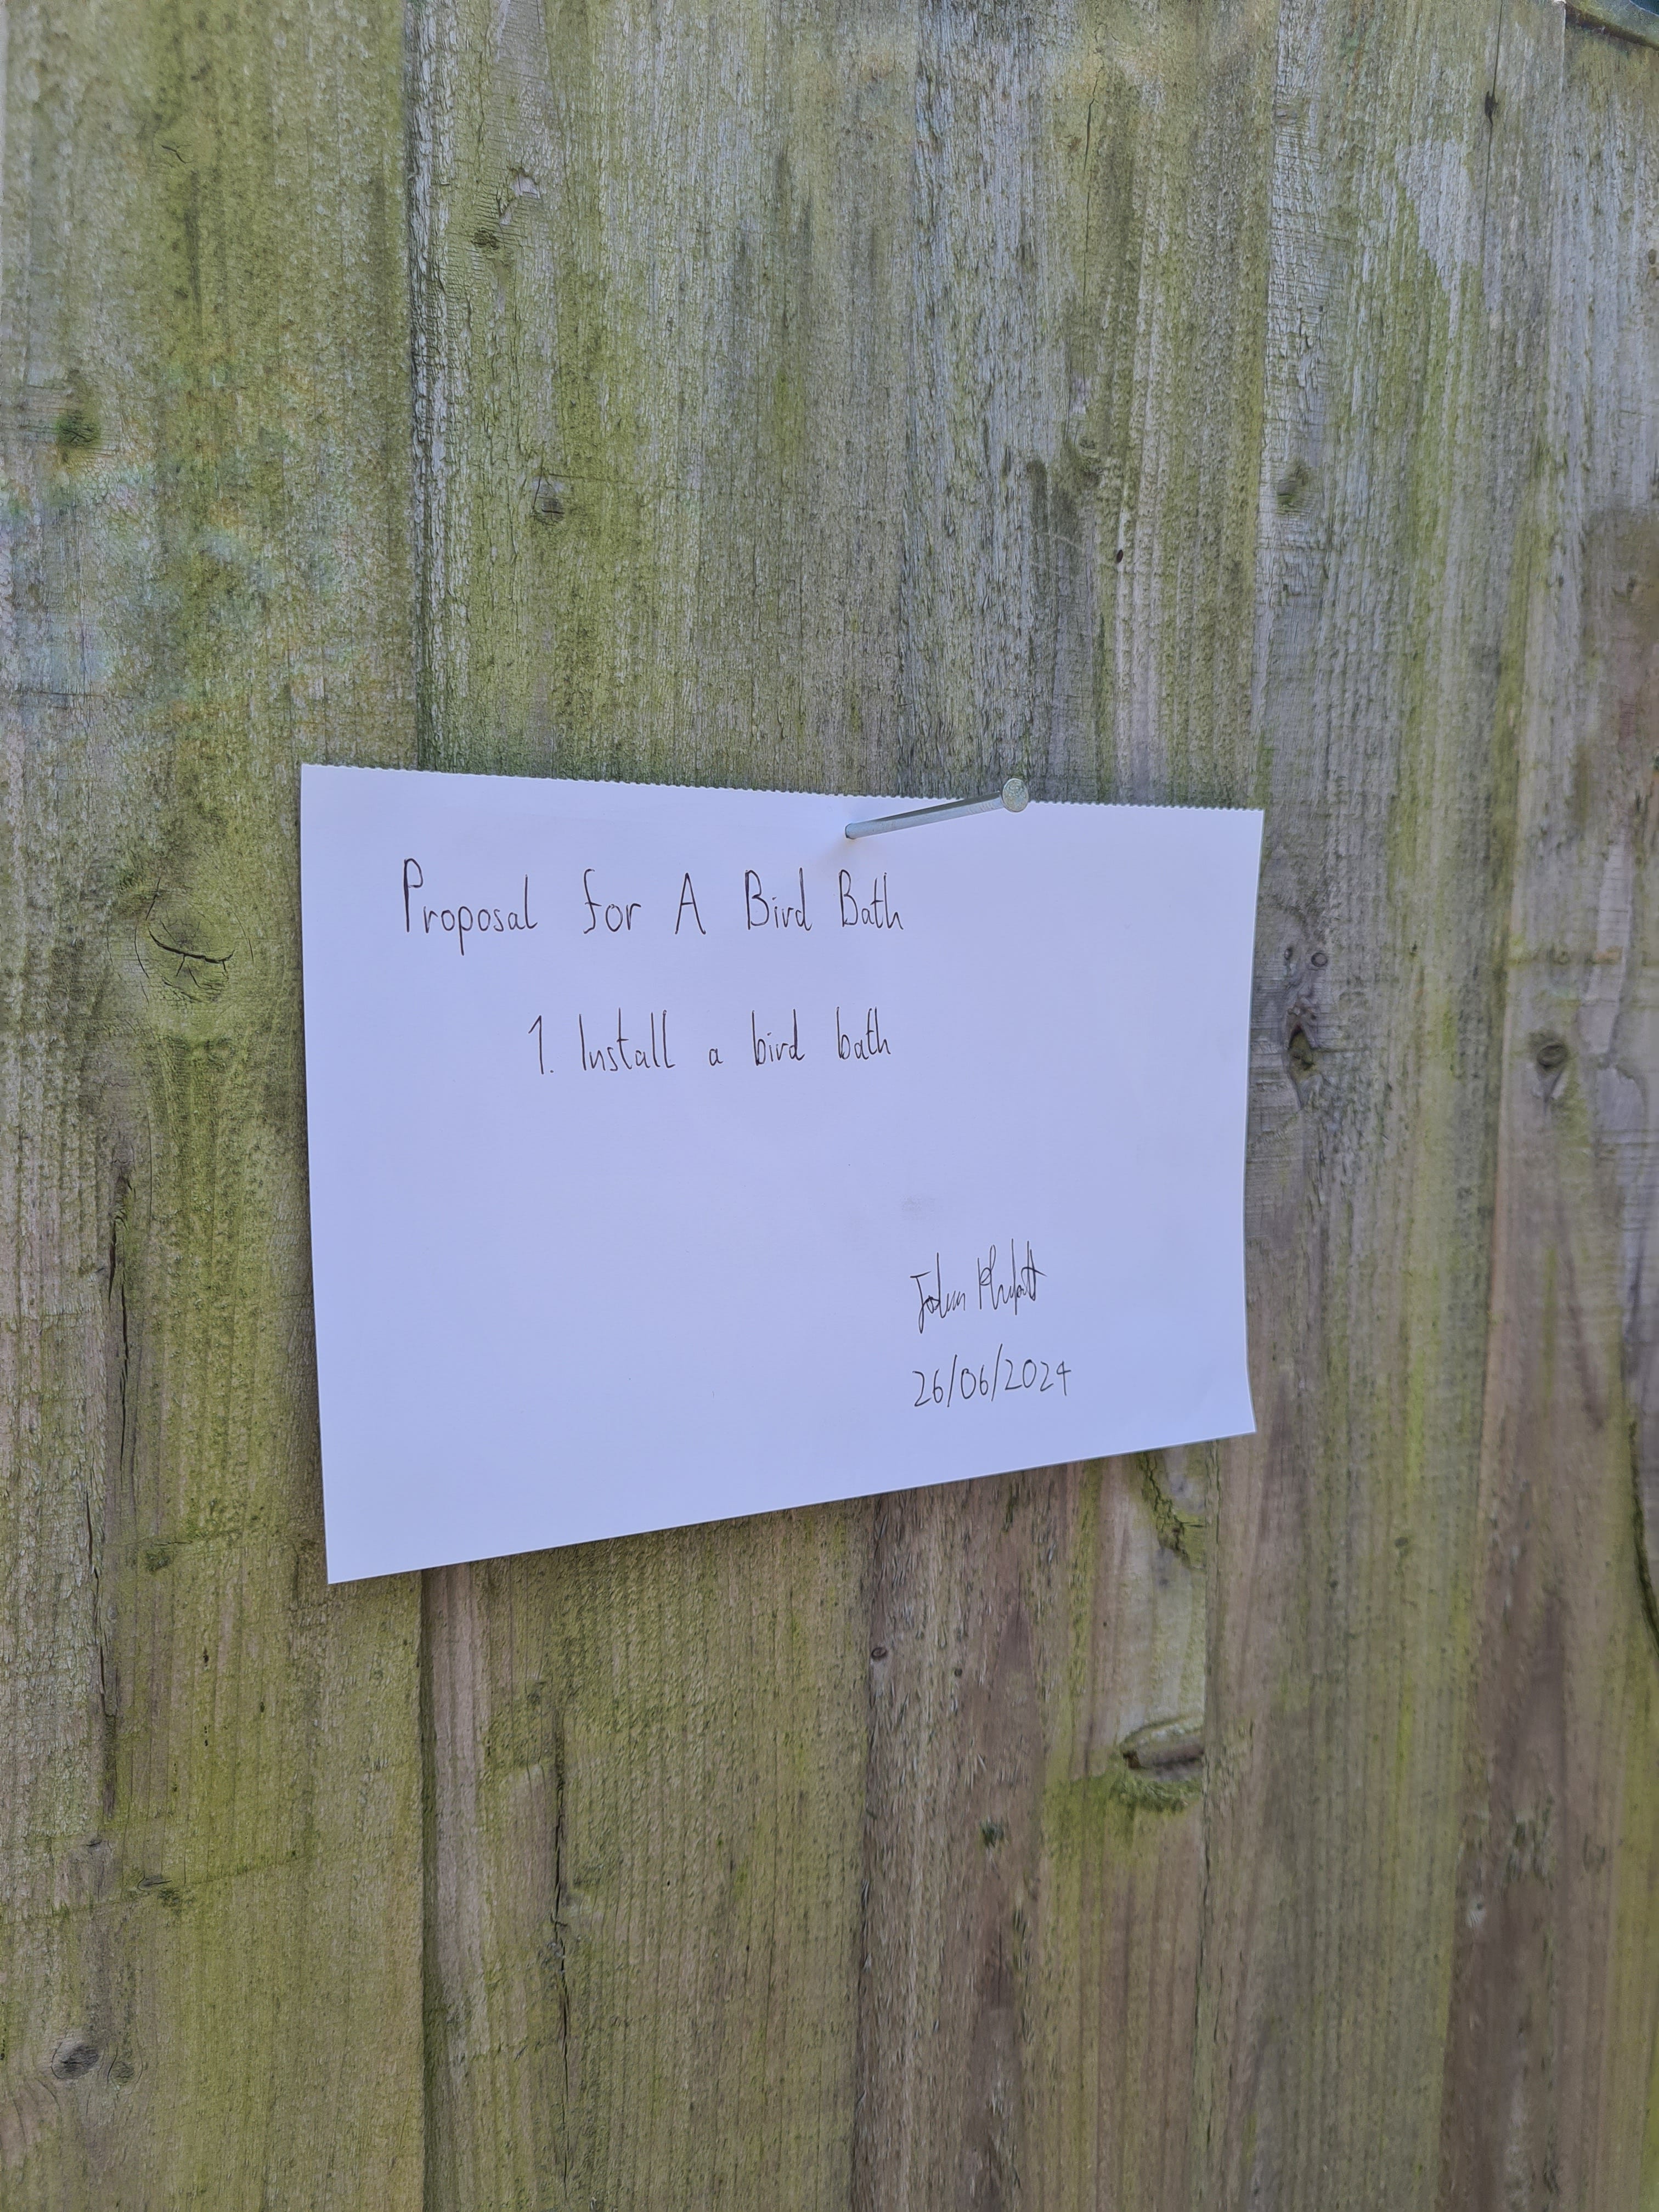 Proposal for A Bird Bath
1. Install a bird bath
John
26/06/2024